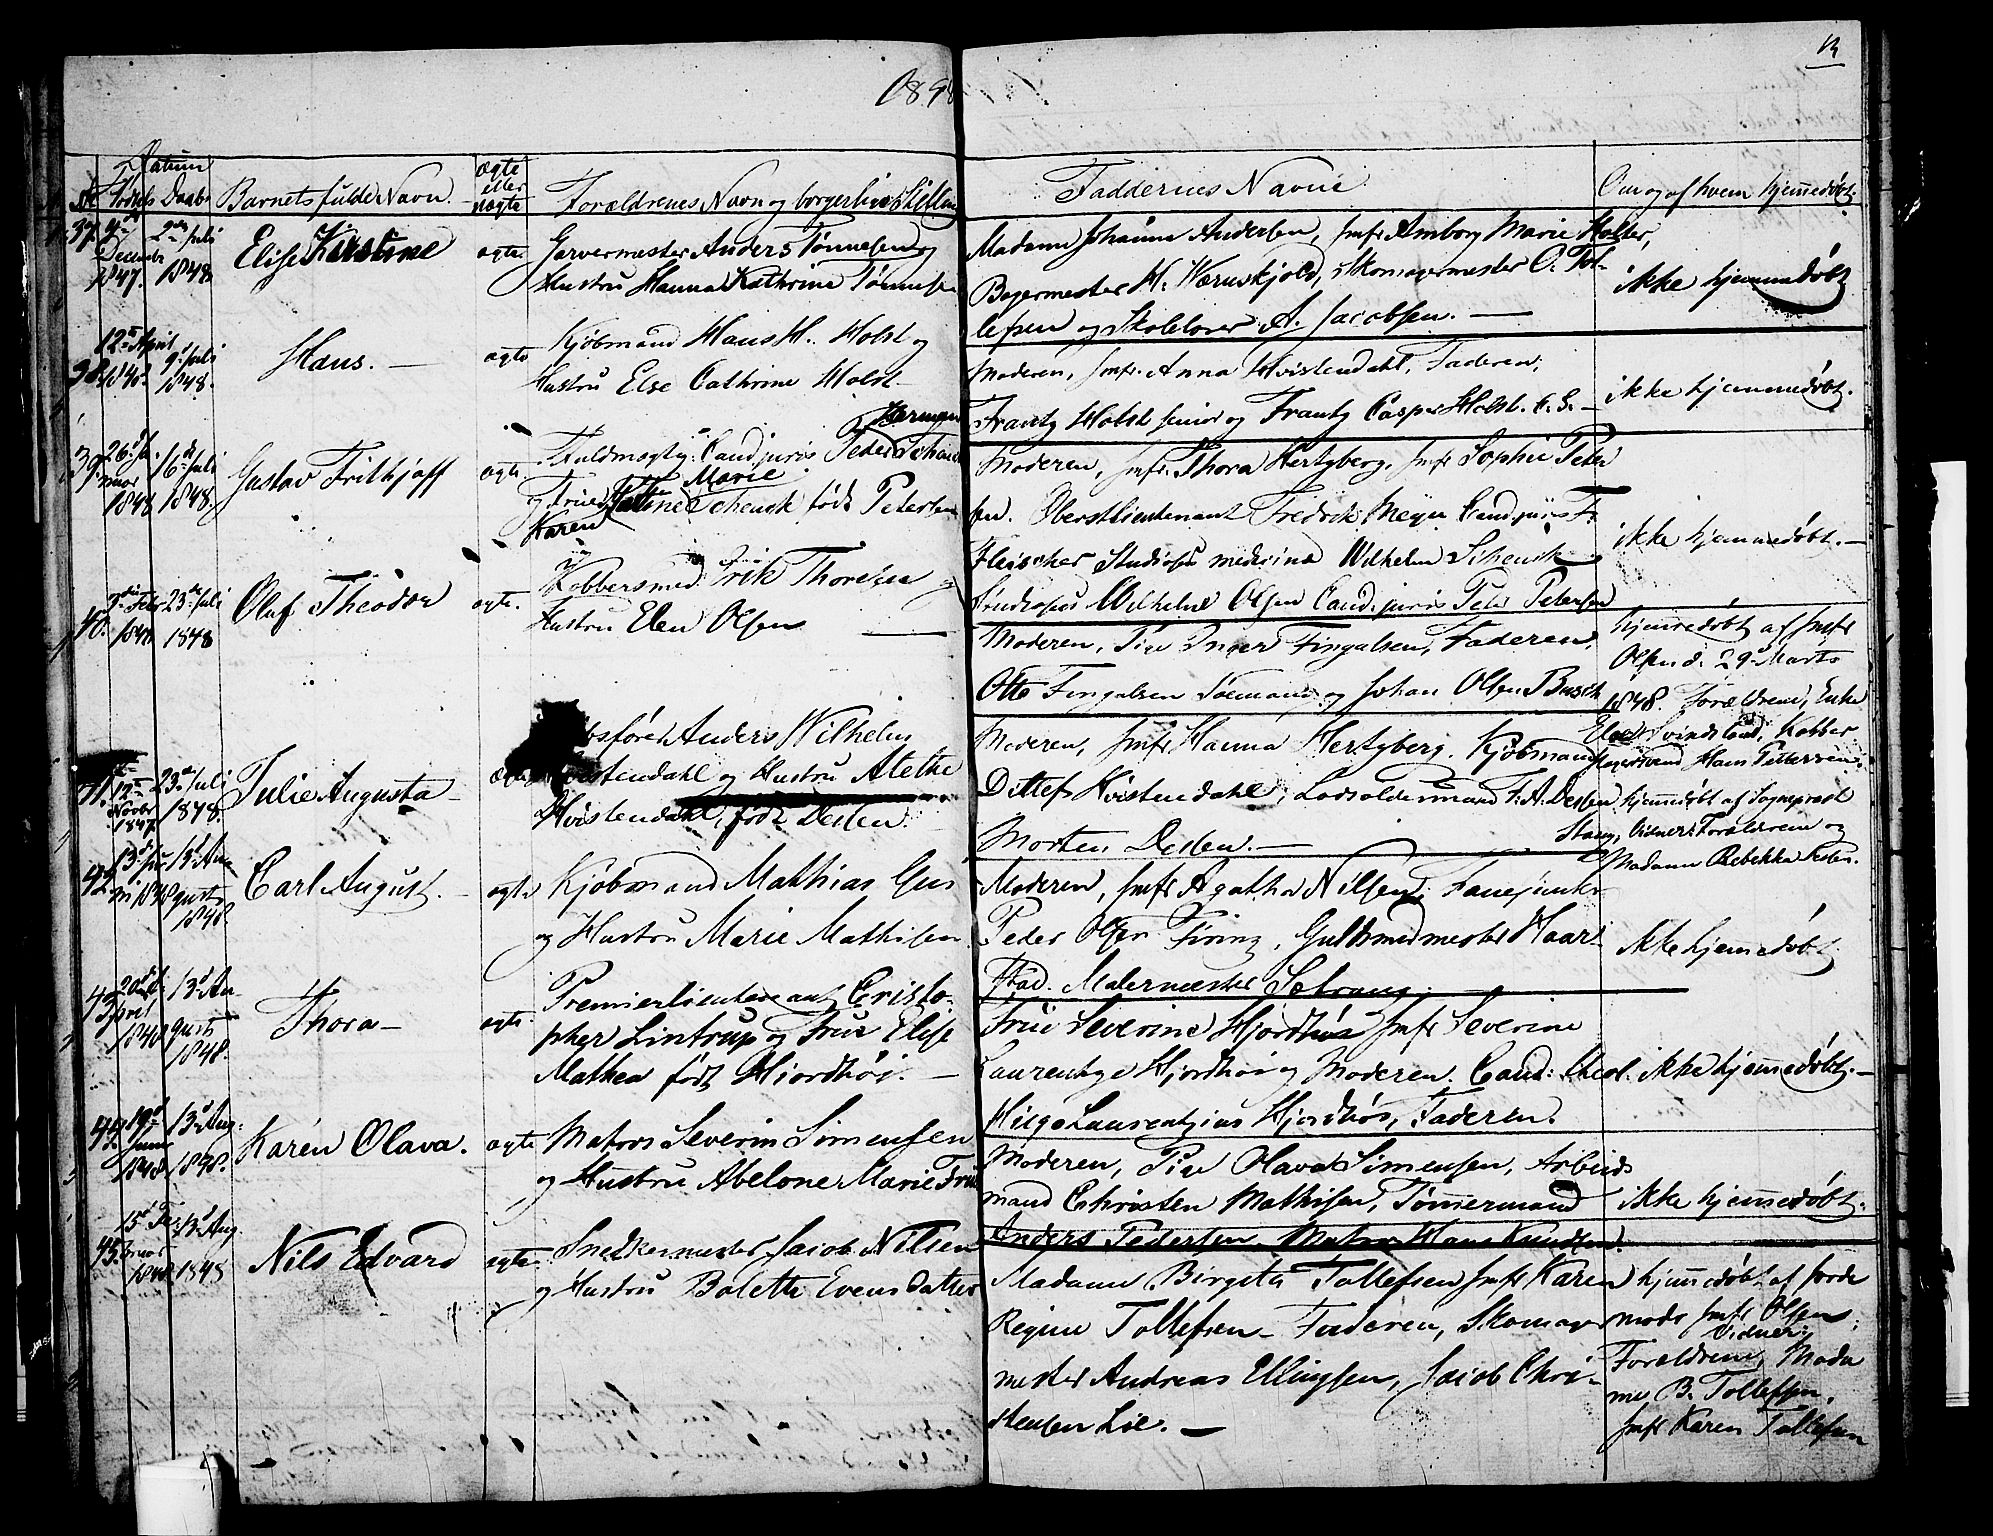 1848
13
Datum
№ Fødsels Daabs Barnets fulde Navn. ægte eller uægte Forældrenes Navn og borgerlige Stilling Faddernes Navne Om og af hvem hjemmedøbt
37. 4de December 1847. 2den Juli 1848 Elise Kirstine ægte Garvermester Anders Tønnesen og
Hustru Hanna Kathrine Tønnesen
Madame Johanna Andersen, Jmfr Amborg Marie Holter,
Bagermester H. Wærnskjold, Skomagermester O. Tol-
lefsen og Skolelærer A. Jacobsen. —
ikke hjemmedøbt
38. 12te April 1848. 9de Juli 1848. Hans. — ægte Kjøbmand Hans H. Holst og
Hustru Else Cathrine Holst
Moderen, Jmfr. Anna Hvistendahl, Faderen,
Frantz Holst senior og Frantz Casper Holst. C. S. —
ikke hjemmedøbt.
39. 26de Januar 1848 16de Juli 1848. Gustav Frithjoff ægte Fuldmægtig Cand juris Peder Herman Schenck
og Frue Karen Marie Schenck født Petersen
Moderen, Jmfr. Thora Hertzberg, Jmfr Sophie Peter
sen. Oberstlieutenant Fredrik Meyer Cand juris F.
Fleischer Studiosus medicina Wilhelm Schenck
Studiosus Wilhelm Olsen Cand. juris Peter Petersen
ikke hjemmedøbt. —
40. 23de Juli 1848 Oluf Theodor ægte. Kobbersmed Erik Thoresen og
Hustru Elen Olsen —
Moderen, Pige Inger Fingalsen, Faderen,
Otto Fingalsen Sømand og Johan Olsen Busch
hjemmedøbt af Jmfr
Olsen d. 29de Marts
1848. Forældrene, Enke
Svindland, Kobber
Hans Pettersen.
41. 12te Novbr 1847. 23de Juli 1848. Julie Augusta — ægte Anders Wilhelm
Hvistendahl og Hustru Alethe
Hvistendahl, født Dessen.
Moderen, Jmfr Hanna Hertzberg. Kjøbmand
Ditlef Hvistendahl, Lodsoldermand F. A. Dessen
Morten Dessen. —
hjemmedøbt af Sogneprest
Stang, Vidner: Forældrene og
Madame Rebekka
42. 13de Juni 1848 13de Augusts 1848. Carl August. — ægte Kjøbmand Mathias Gus
og Hustru Marie Mathisen
Moderen, Jmfr Agatha Nilsen, Fanejunker
Peder Olsen Firing, Guldsmedmester Haar
stad. Malermester
ikke hjemmedøbt.
43. April 1848 13de August 1848. Thora — ægte. Premierlieutenant Cristo-
pher Lintrup og Frue Elise
Mathea født Hjordhøi. —
Frue Severine Hjordhøi Jmfr Severine
Laurentze Hjordhøi og Moderen. Cand: theol.
Laurentzius Hjordhøi, Faderen.
ikke hjemmedøbt. —
44. 19de Januar 1848. 13de Aug. 1848. Karen Olava. ægte Matros Severin Simensen
og Hustru Abelone Marie
Moderen, Pige Olava Simensen, Arbeids
mand Christen Mathisen, Tømmermand
Anders Pedersen, Matros Hans Knudsen.
ikke hjemmedøbt.
45. 15de Februar 1848 13de Aug. 1848 Nils Edvard ægte Snedkermester Jacob Nilsen
og Hustru Bolette Evensdatter
Madame Birgita Tollefsen Jmfr Karen
Regine Tollefsen — Faderen, Skomager
mester Andreas Ellingsen, Jacob Chri-
stensen Lie. —
hjemmedøbt af Jorde
mode Jmfr Olsen,
Vidner:
Forældrene, Mada
me B. Tollefsen,
Jmfr Karen Tollefsen